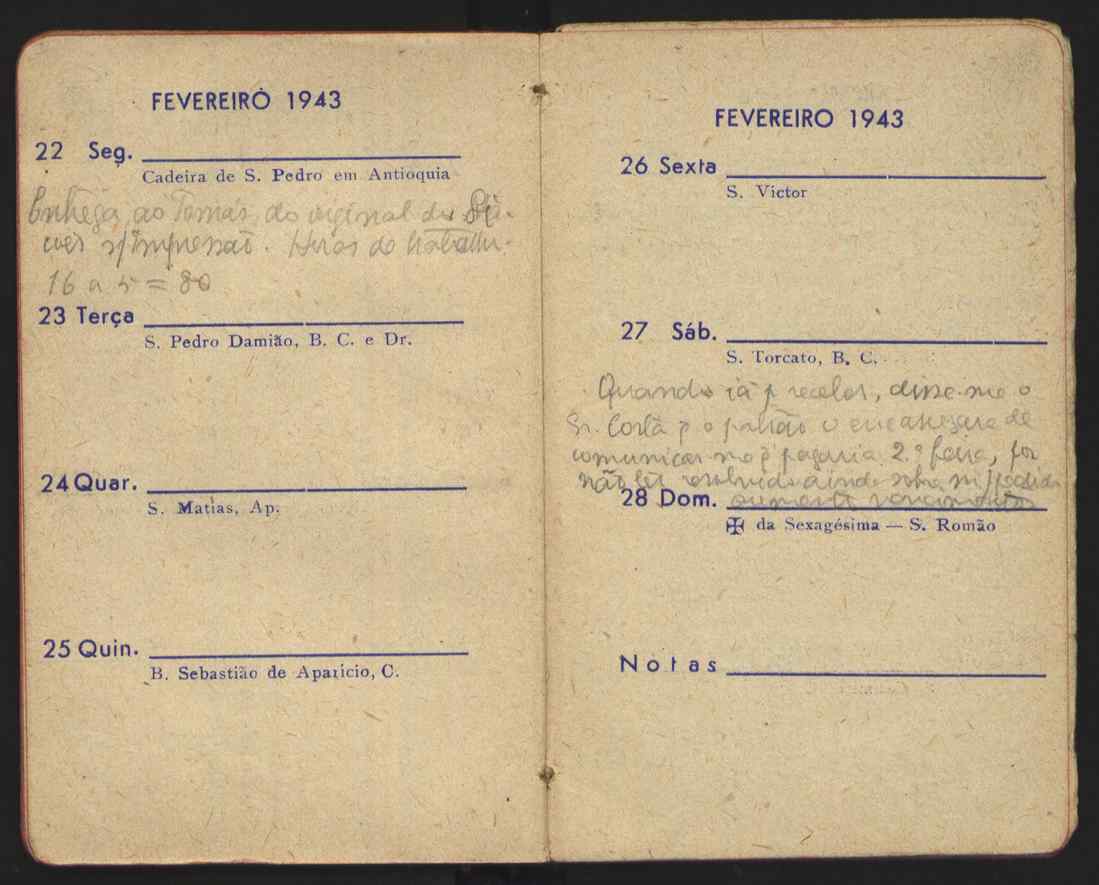 FEVEREIRO 1943
22 Seg.
Cadeira de S. Pedro em Antioquia
Entrega, ao Tomás, do original da
s/ impressão. Horas de trabalho:
16 a 5 = 80
23 Terça
S. Pedro Damião, B. C. e Dr.
24 Quar.
S. Matias, Ap.
25 Quin.
B. Sebastião de Aparício, C.
FEVEREIRO 1943
26 Sexta
S. Victor
27 Sáb.
S. Torcato, B. C.
Quando ia p receber, disse-me o
Sr. Costa q o patrão o encarregara de
comunicar-me q pagaria 2.ª feira, por
não ter resolvido ainda sobre m/ pedido
28 Dom. aumento vencimentos
✠ da Sexagésima — S. Romão
Notas